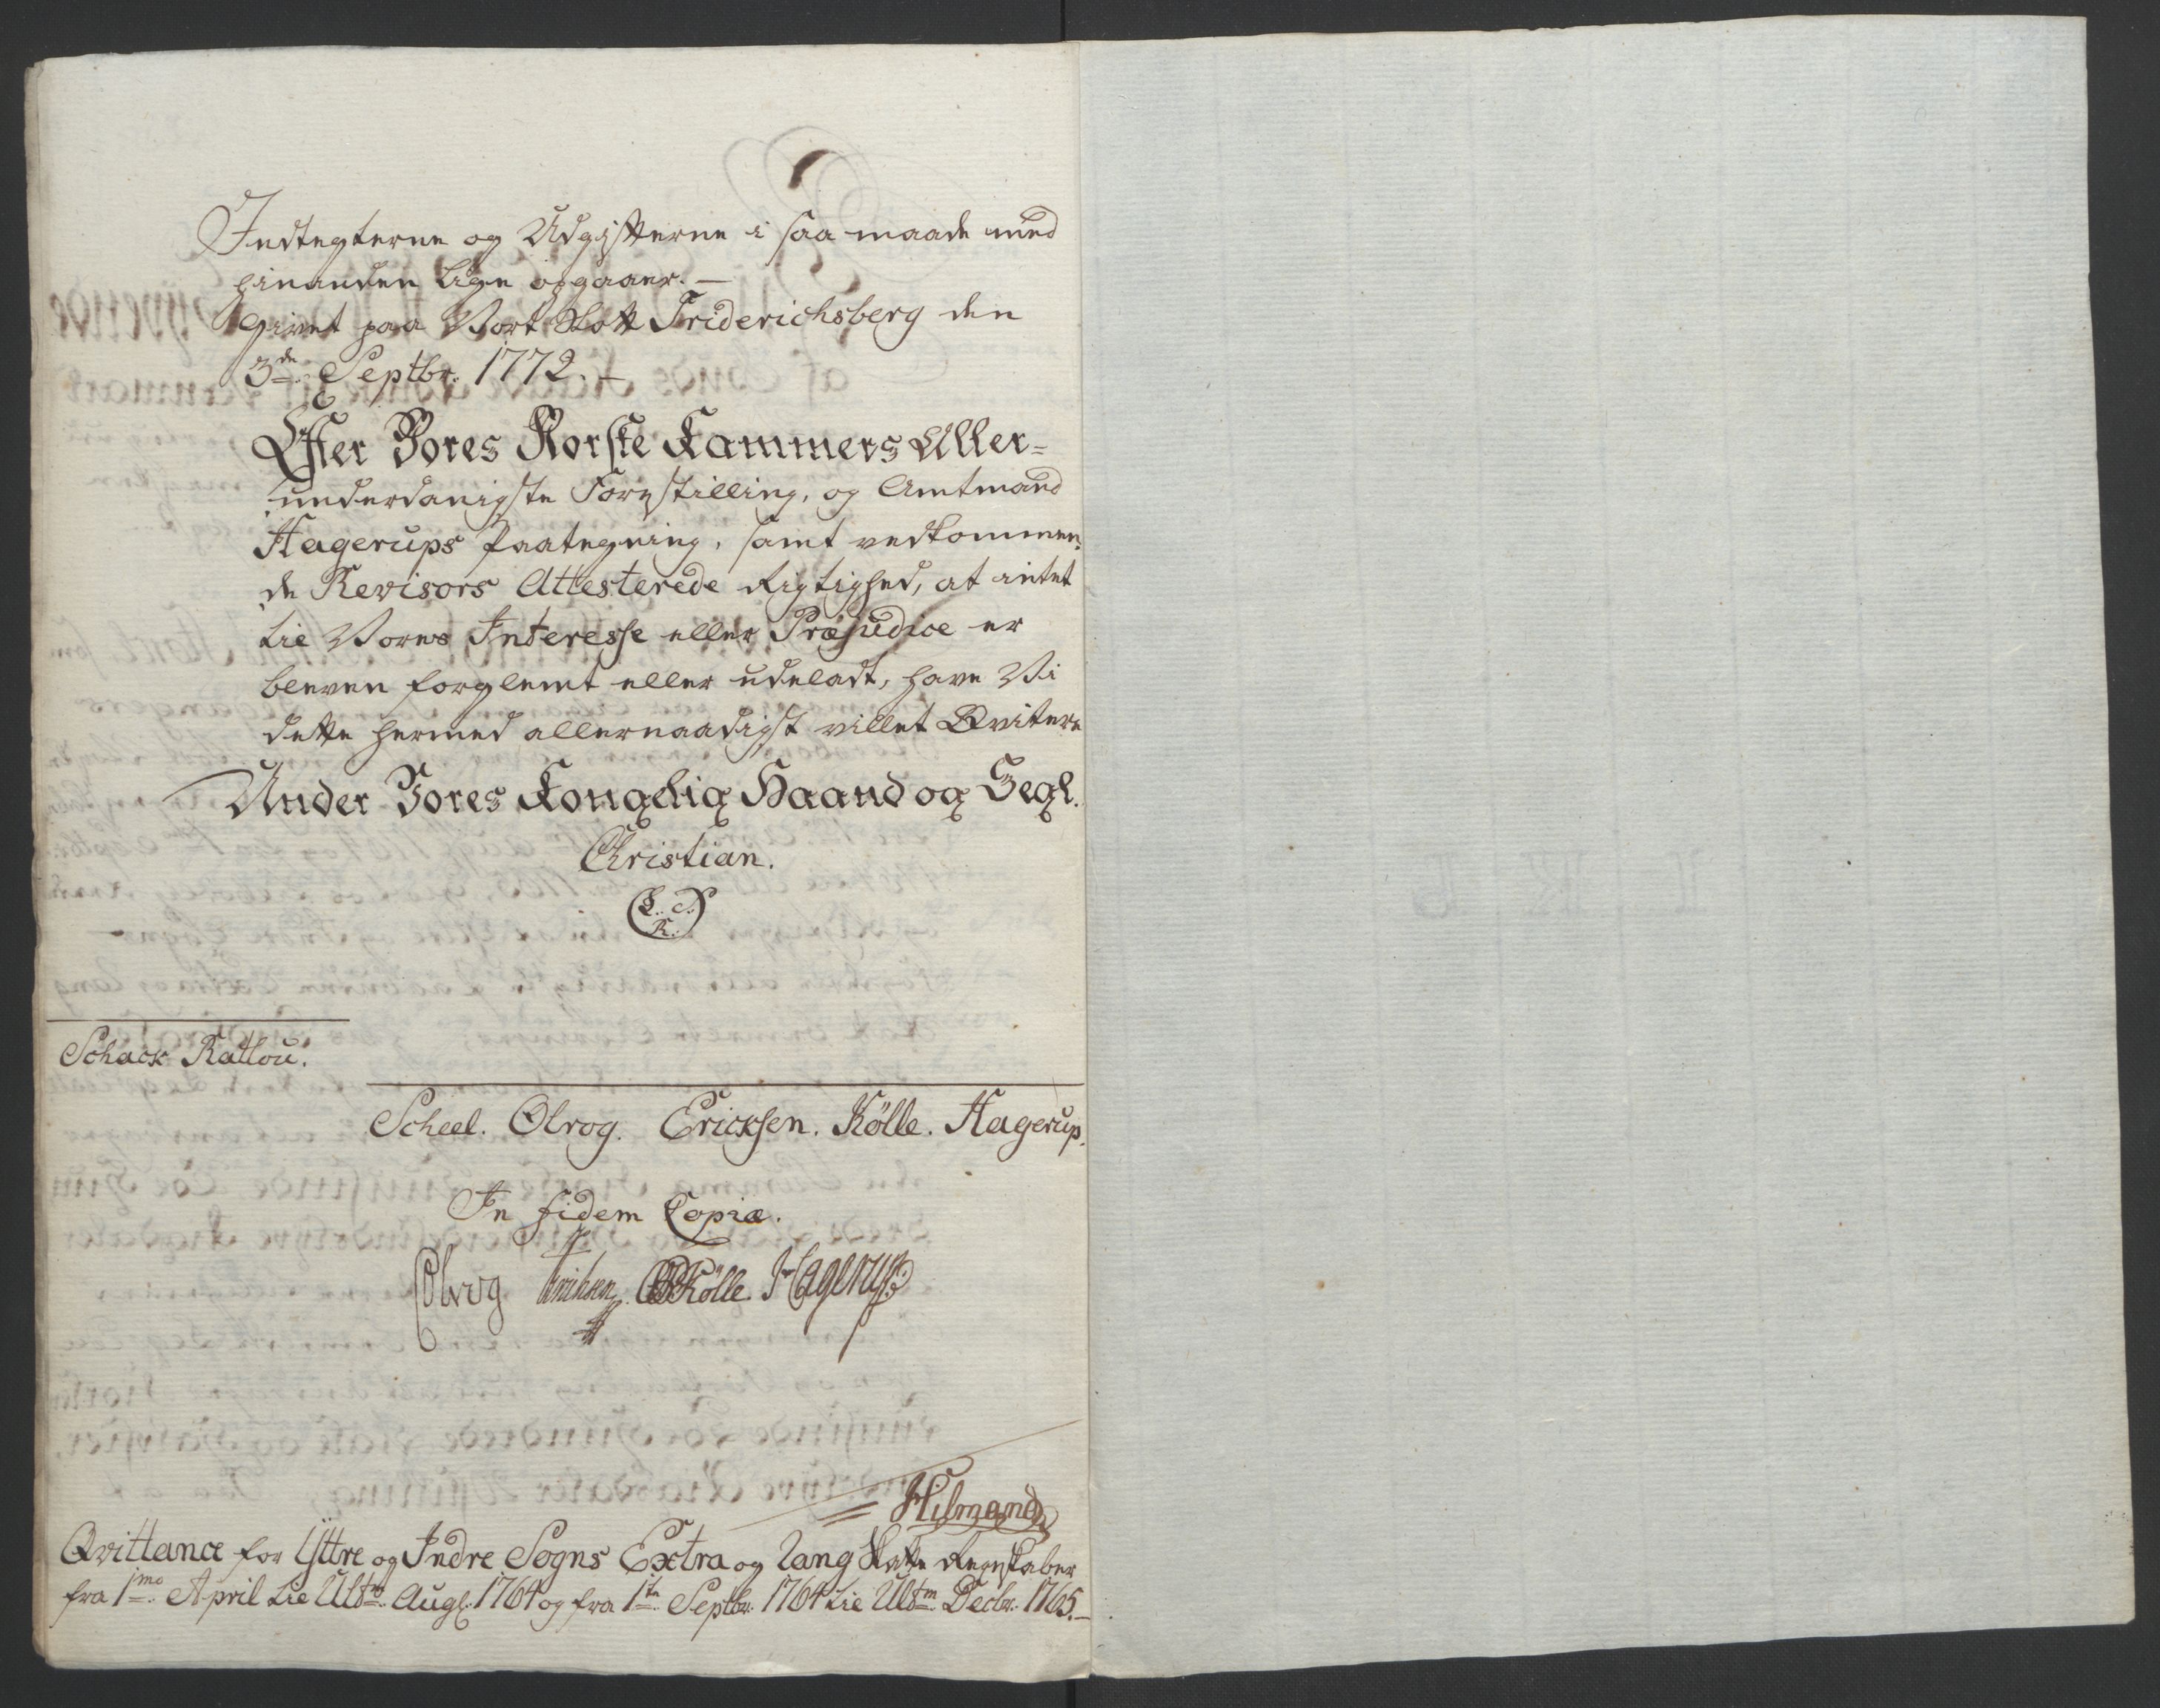 Indtegterne og Udgifterne i saa maade med
hinanden lige opgaaer. —
Givet paa Vort Slott Friderichsberg den
3de Septbr. 1772. —
Efter Vores Norske Kammers Aller=
underdanigste Forestilling, og Amtmand
Hagerups Paategning, samt vedkommen=
de Revisors Attesterede Rigtighed, at intet
tie Vores Interesse eller Præjudice er
bleven forglemt eller udeladt, have Vi
dette hermed allernaadigst villet Qvitere
Under Vores Kongelig Haand og Segl.
Christian.
L. S.
R.
Schack Ratlou.
Scheel. Olrog. Ericksen. Kölle. Hagerup.
In fidem Copiæ.
Olrog Erichsen Kölle Hagerup
Hilmand
Qvittance for Yttre og Indre Sogns Extra og Lang Skatte Regnskaber
fra 1mo April tie Ultm Augs. 1764 og fra 1te Septbr. 1764 tie Ultm Decbr. 1765. —